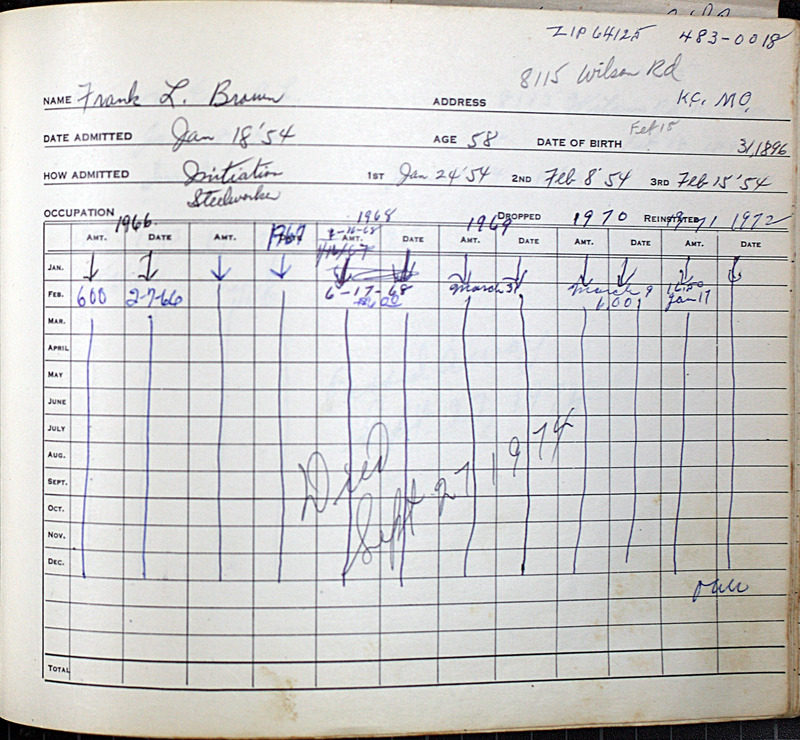 ZIP 64125 483-0018
8115 Wilson Rd
NAME Frank L. Brown ADDRESS K.C. MO.
DATE ADMITTED Jan 18 '54 AGE 58 DATE OF BIRTH Feb 15 31, 1896
HOW ADMITTED Initiation 1ST Jan 24 '54 2ND Feb 8 '54 3RD Feb 15 '54
Steelworker
OCCUPATION DROPPED REINSTATED
1966 1967 1968 1969 1970 1971 1972
AMT. DATE AMT. AMT. DATE AMT. DATE AMT. DATE AMT. DATE
JAN.
FEB. 600 2-7-66 6-17-68 March 31 March 9
6.00 6.00 Jan 17
MAR.
APRIL
MAY
JUNE
JULY
AUG.
SEPT.
OCT.
NOV.
DEC.
Died
Sept 27 1974
over
TOTAL